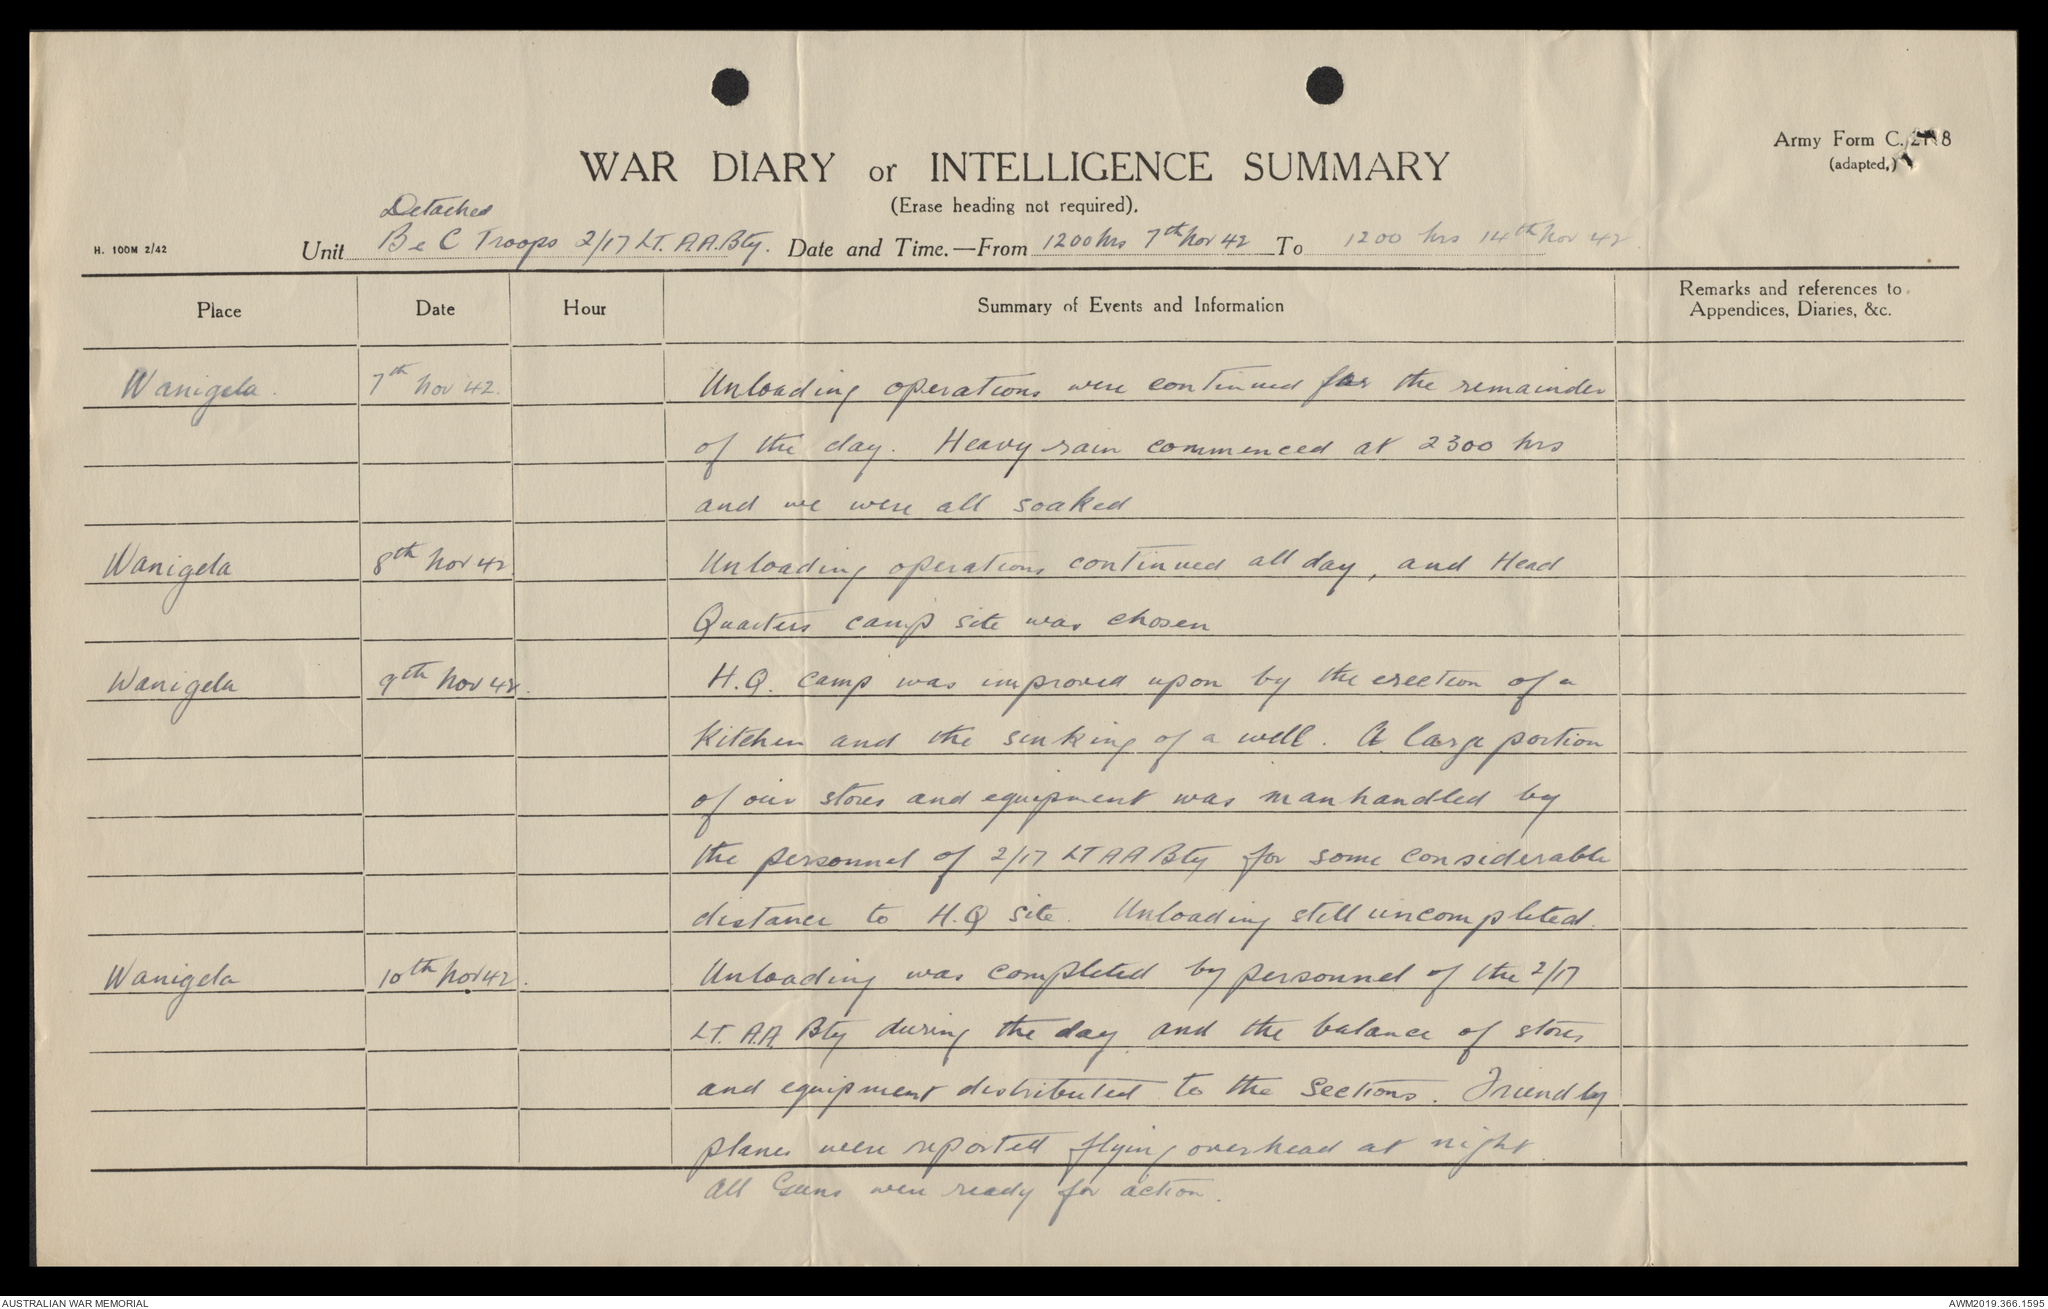 Army Form C. 2118
(adapted.)
WAR DIARY or INTELLIGENCE SUMMARY
(Erase heading not required).
H. 100M 2/42
Detached
Unit B & C Troops 2/17 Lt. A.A. Bty. Date and Time.—From 1200 hrs 7th Nov 42 To 1200 hrs 14th Nov 42.
Place Date Hour Summary of Events and Information Remarks and references to Appendices, Diaries, &c.
Wanigela. 7th Nov 42. Unloading operations were continued for the remainder
of the day. Heavy rain commenced at 2300 hrs
and we were all soaked
Wanigela 8th Nov 42 Unloading operations continued all day, and Head
Quarters camp site was chosen
Wanigela 9th Nov 42. H.Q. camp was improved upon by the erection of a
kitchen and the sinking of a well. A large portion
of our stores and equipment was manhandled by
the personnel of 2/17 LT AA Bty for some considerable
distance to H.Q site. Unloading still uncompleted.
Wanigela 10th Nov 42. Unloading was completed by personnel of the 2/17
LT. A.A. Bty during the day and the balance of stores
and equipment distributed to the Sections. Friendly
planes were reported flying overhead at night.
All Guns were ready for action.
AUSTRALIAN WAR MEMORIAL
AWM2019.366.1595